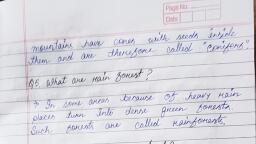 Page No.
Date
mountains have cones with seeds inside
them and are therefore called "conifers".
Q5. What are rain forest?
→ In some areas because of heavy rain
places turn into dense green forests.
Such forests are called rainforests.